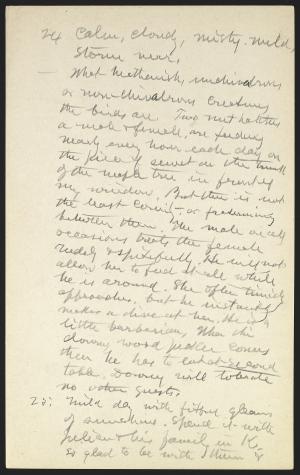 24 Calm, cloudy, misty. mild,
Storm near.
— What heathenish, unchivalrous
or non-chivalrous creatures
the birds are. Two nuthatches
a male & female, are feeding
nearly every hour each day on
the piece of suet on the trunk
of the maple tree in front of
my window. But there is not
the least loving or fraternizing
between them. The male on all
occasions treats the female
rudely & spitefully. He will not
allow her to feed at all while
he is around. She often timidly
approaches, but he instantly
makes a dive at her, the
little barbarian. When the
downy woodpecker comes
then he has to eat at second
table. Downy will tolerate
no other guests.
25: Mild day with fitful gleams
of sunshine. Spend it with
Julian & his family in K.
so glad to be with them &